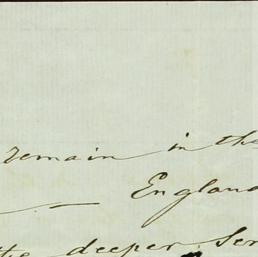 remain in the
England
the deeper sen